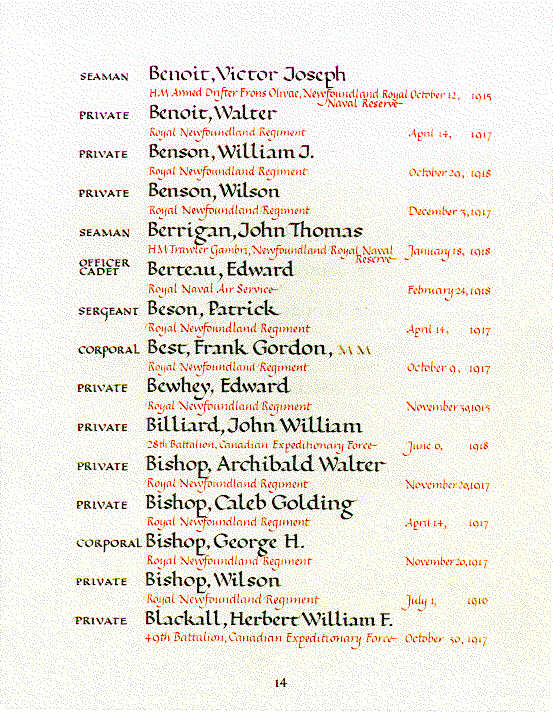 SEAMAN Benoit, Victor Joseph
H.M. Armed Drifter Frons Olivae, Newfoundland Royal October 12, 1915
Naval Reserve
PRIVATE Benoit, Walter
Royal Newfoundland Regiment April 14, 1917
PRIVATE Benson, William J.
Royal Newfoundland Regiment October 29, 1918
PRIVATE Benson, Wilson
Royal Newfoundland Regiment December 3, 1917
SEAMAN Berrigan, John Thomas
H M Trawler Gambri, Newfoundland Royal Naval January 18, 1918
Reserve
OFFICER
CADET Berteau, Edward
Royal Naval Air Service February 24, 1918
SERGEANT Beson, Patrick
Royal Newfoundland Regiment April 14, 1917
CORPORAL Best, Frank Gordon, M M
Royal Newfoundland Regiment October 9, 1917
PRIVATE Bewhey, Edward
Royal Newfoundland Regiment November 30, 1915
PRIVATE Billiard, John William
28th Battalion, Canadian Expeditionary Force June 6, 1918
PRIVATE Bishop, Archibald Walter
Royal Newfoundland Regiment November 20, 1917
PRIVATE Bishop, Caleb Golding
Royal Newfoundland Regiment April 14, 1917
CORPORAL Bishop, George H.
Royal Newfoundland Regiment November 20, 1917
PRIVATE Bishop, Wilson
Royal Newfoundland Regiment July 1, 1916
PRIVATE Blackall, Herbert William F.
49th Battalion, Canadian Expeditionary Force October 30, 1917
14